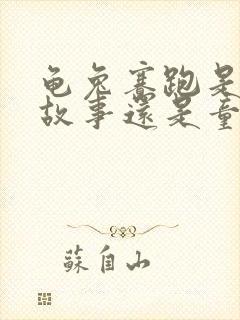 龟兔赛跑是
故事還是童
蘇自山